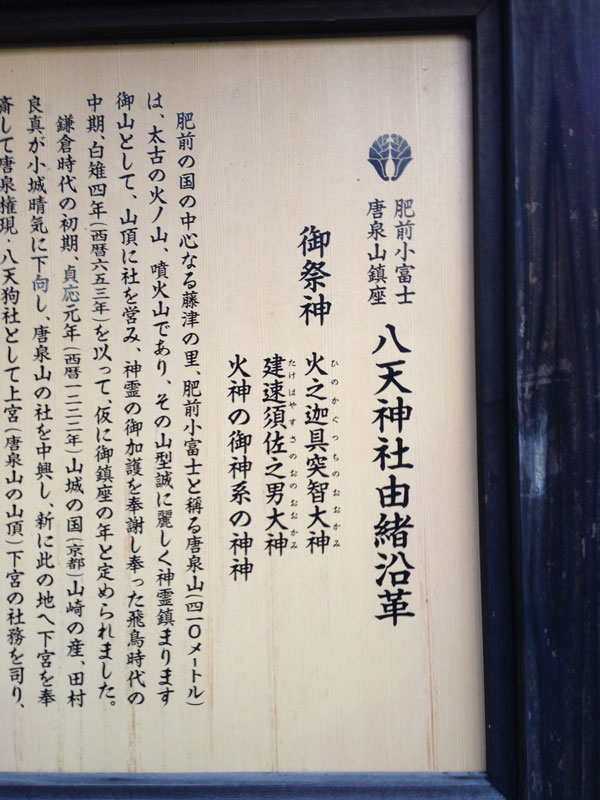 肥前小富士
唐泉山鎮座
八天神社由緒沿革
御祭神
火之迦具突智大神
ひのかぐつちのおおかみ
建速須佐之男大神
たけはやすさのおのおおかみ
火神の御神系の神神
肥前の国の中心なる藤津の里、肥前小富士と稱る唐泉山(四一〇メートル)
は、太古の火ノ山、噴火山であり、その山型誠に麗しく神霊鎮まります
御山として、山頂に社を営み、神霊の御加護を奉謝し奉った飛鳥時代の
中期、白雉四年(西暦六五三年)を以って、仮に御鎮座の年と定められました。
鎌倉時代の初期、貞応元年(西暦一二二二年)山城の国(京都)山崎の産、田村
良真が小城晴気に下向し、唐泉山の社を中興し、新に此の地へ下宮を奉
斎して唐泉権現・八天狗社として上宮(唐泉山の山頂)下宮の社務を司り、